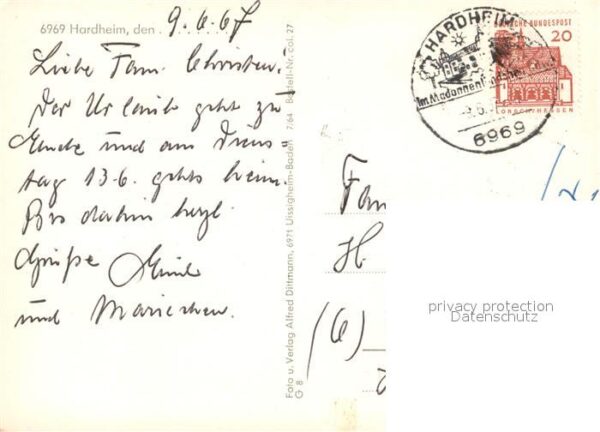 6969 Hardheim, den 9.6.67
Liebe Fam.
Der Urlaub geht zu
Ende und am Diens
tag 13.6. gehts heim.
Bis dahin herzl.
Grüße Emil
und Mariechen.
Foto u. Verlag Alfred Dittmann, 6971 Uissigheim-Baden 7/64 Bestell-Nr. col. 27
G 8
HARDHEIM
Im Madonnenländchen
6969
DEUTSCHE BUNDESPOST
20
LORSCH/HESSEN
Fam
H
(6)
privacy protection
Datenschutz